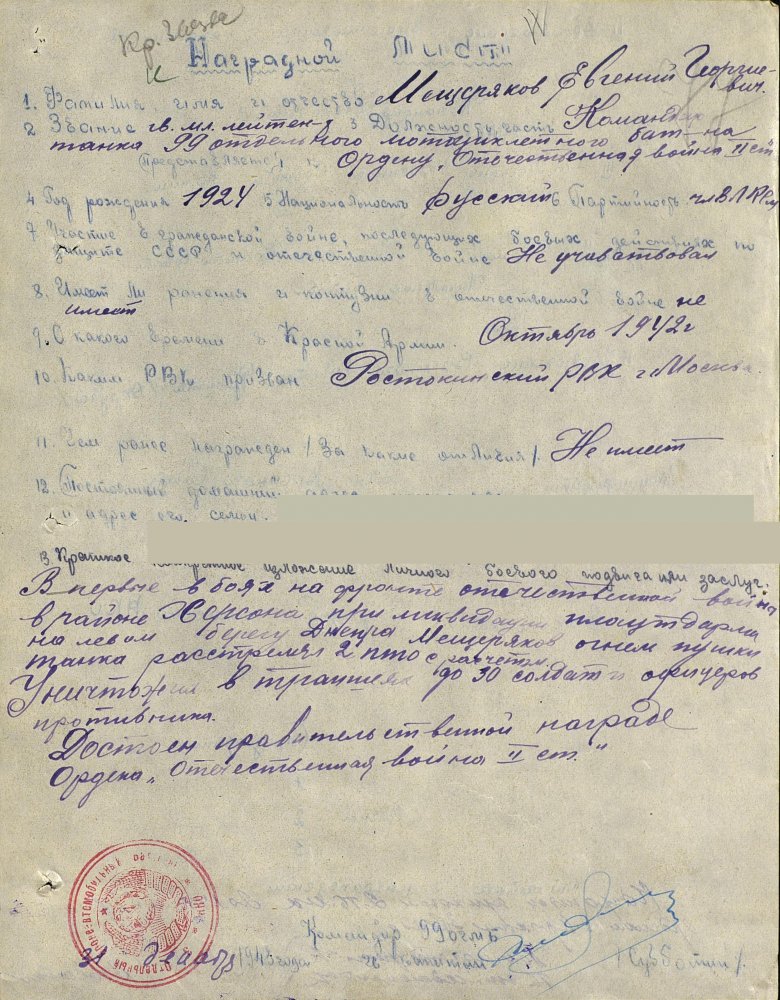 Кр. Звезда
Наградной лист
1. Фамилия, имя и отчество Мещеряков Евгений Георгие-
вич.
2 Звание гв. мл. лейтен-т 3 Должность, часть Командир
танка 99 отдельного мотоциклетного бат-на
Представляется к Ордену „Отечественная война II ст"
4 Год рождения 1924 5 Национальность Русский 6 Партийность чл ВЛКСМ
7 Участие в гражданской войне, последующих боевых действиях по
защите СССР и отечественной войне Не учавствовал
8. Имеет ли ранения и контузии в отечественной войне не
имеет
9. С какого времени в Красной Армии. Октябрь 1942г
10. Каким РВК призван Ростокинский РВК г. Москва
11. Чем ранее награжден /За какие отличия/ Не имеет
12. Постоянный домашний
и адрес его семьи.
13 Краткое конкретное изложение личного боевого подвига или заслуг:
Впервые в боях на фронте отечественной войны
в районе Херсона при ликвидации плацдарма
на левом берегу Днепра Мещеряков огнем пушки
танка расстрелял 2 пто с расчетом.
Уничтожил в траншеях до 30 солдат и офицеров
противника.
Достоен правительственной награде
Ордена „Отечественная война II ст."
Командир 99 ОГМБ
31 декабря 1943 года гв капитан /Субботин/.